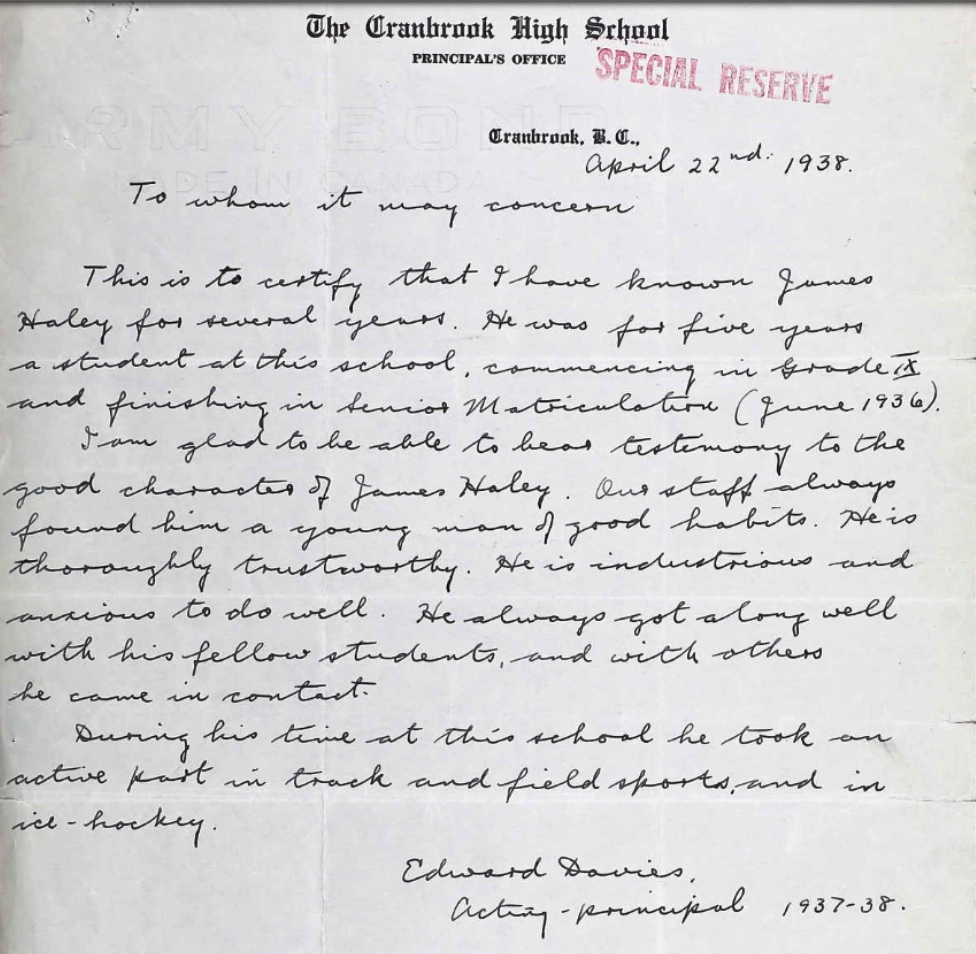 The Cranbrook High School
PRINCIPAL'S OFFICE
SPECIAL RESERVE
ARMY BOND
MADE IN CANADA
Cranbrook, B.C.,
April 22nd. 1938.
To whom it may concern
This is to certify that I have known James
Haley for several years. He was for five years
a student at this school, commencing in Grade IX
and finishing in Senior Matriculation (June 1936).
I am glad to be able to bear testimony to the
good character of James Haley. Our staff always
found him a young man of good habits. He is
thoroughly trustworthy. He is industrious and
anxious to do well. He always got along well
with his fellow students, and with others
he came in contact.
During his time at this school he took an
active part in track and field sports, and in
ice-hockey.
Edward Davies,
Acting-principal 1937-38.